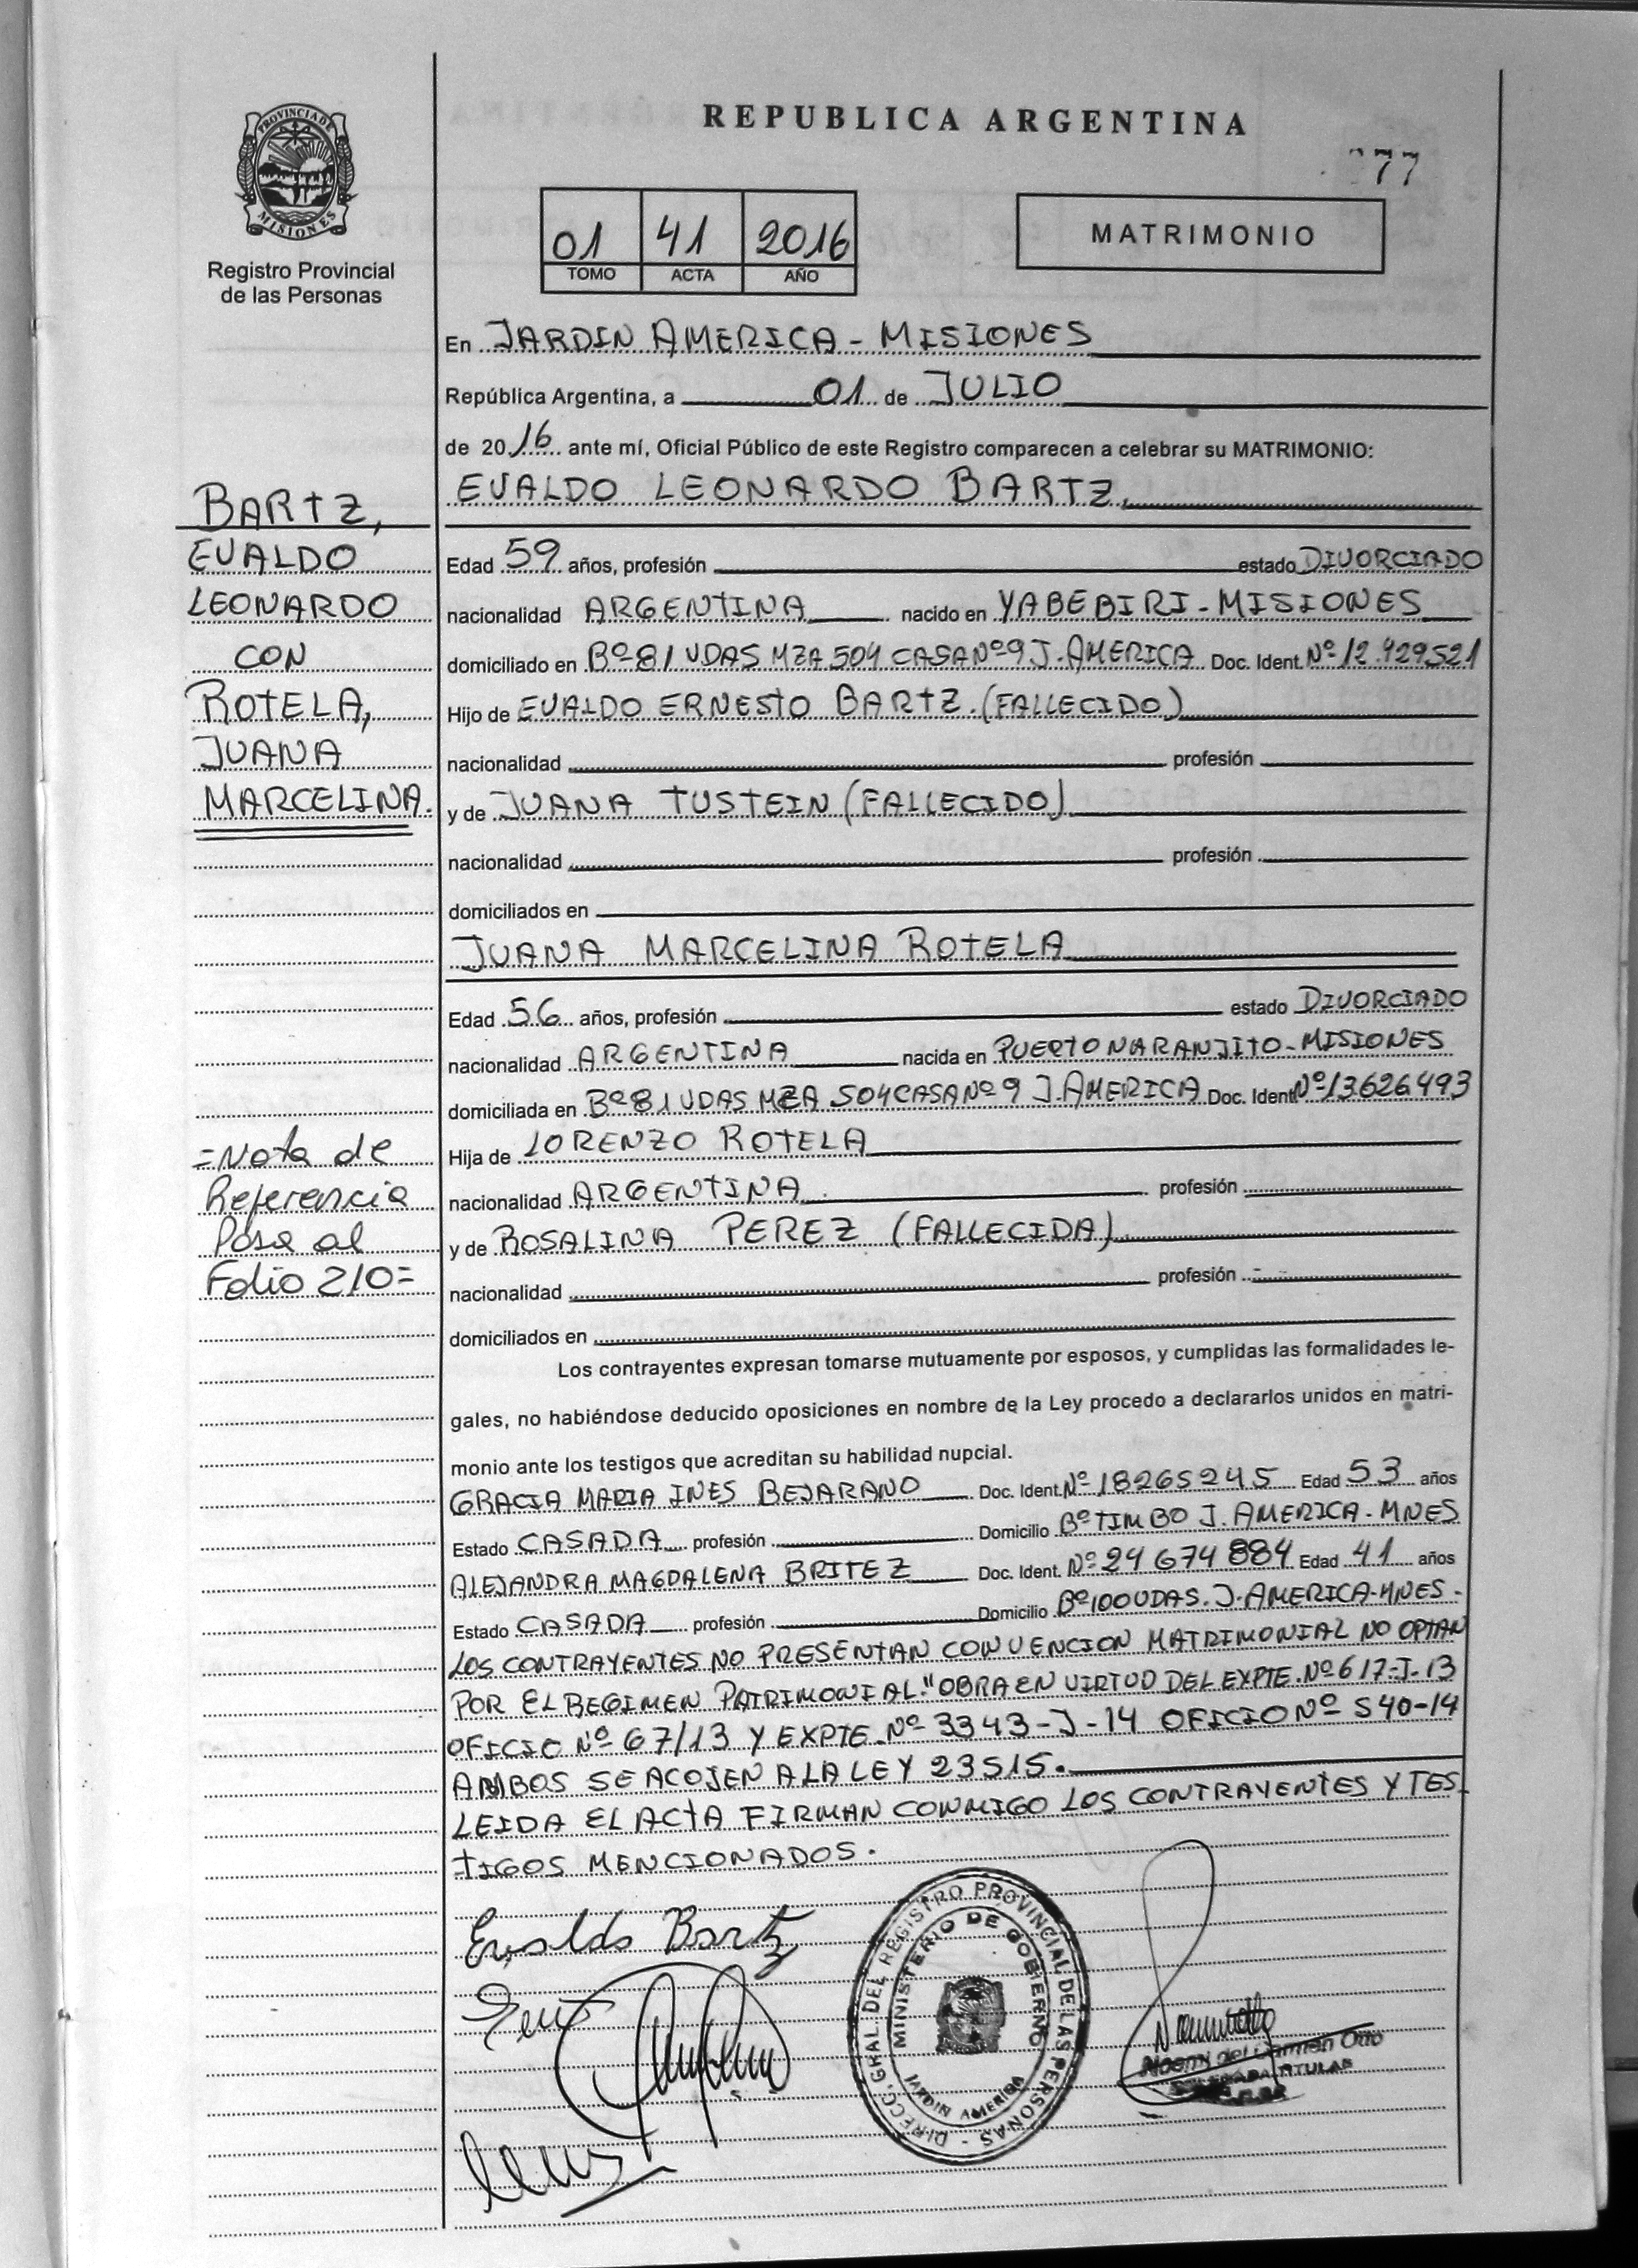 REPUBLICA ARGENTINA
77
PROVINCIA DE
MISIONES
Registro Provincial
de las Personas
01 41 2016
TOMO ACTA AÑO
MATRIMONIO
En JARDIN AMERICA - MISIONES
República Argentina, a 01 de JULIO
de 2016 ante mí, Oficial Público de este Registro comparecen a celebrar su MATRIMONIO:
EVALDO LEONARDO BARTZ.
BARTZ,
EVALDO
LEONARDO
CON
ROTELA,
JUANA
MARCELINA.
Edad 59 años, profesión estado DIVORCIADO
nacionalidad ARGENTINA nacido en YABEBIRI - MISIONES
domiciliado en Bº 81 VDAS MZA 504 CASA Nº 9 J. AMERICA Doc. Ident. Nº 12.429521
Hijo de EVALDO ERNESTO BARTZ. (FALLECIDO)
nacionalidad profesión
y de JUANA TUSTEIN (FALLECIDO)
nacionalidad profesión
domiciliados en
JUANA MARCELINA ROTELA
Edad 56 años, profesión estado DIVORCIADO
nacionalidad ARGENTINA nacida en PUERTO NARANJITO - MISIONES
domiciliada en Bº 81 VDAS MZA 504 CASA Nº 9 J. AMERICA Doc. Ident. Nº 13626493
Hija de LORENZO ROTELA
nacionalidad ARGENTINA profesión
y de ROSALINA PEREZ (FALLECIDA)
nacionalidad profesión
domiciliados en
=Nota de
Referencia
Pasa al
Folio 210=
Los contrayentes expresan tomarse mutuamente por esposos, y cumplidas las formalidades le-
gales, no habiéndose deducido oposiciones en nombre de la Ley procedo a declararlos unidos en matri-
monio ante los testigos que acreditan su habilidad nupcial.
GRACIA MARIA INES BEJARANO Doc. Ident. Nº 18265245 Edad 53 años
Estado CASADA profesión Domicilio Bº TIMBO J. AMERICA - MNES
ALEJANDRA MAGDALENA BRITEZ Doc. Ident. Nº 24 674 884 Edad 41 años
Estado CASADA profesión Domicilio Bº 100 VDAS. J. AMERICA-MNES-
LOS CONTRAYENTES NO PRESENTAN CONVENCION MATRIMONIAL NO OPTAN
POR EL REGIMEN PATRIMONIAL."OBRA EN VIRTUD DEL EXPTE. Nº 617-J-13
OFICIO Nº 67/13 Y EXPTE. Nº 3343-J-14 OFICIO Nº 540-14
AMBOS SE ACOJEN A LA LEY 23515.
LEIDA EL ACTA FIRMAN CONMIGO LOS CONTRAYENTES Y TES
TIGOS MENCIONADOS.
Evaldo Bartz
DIRECC. GRAL. DEL REGISTRO PROVINCIAL DE LAS PERSONAS -
MINISTERIO DE GOBIERNO
JARDIN AMERICA
Noemi del Carmen Otto
DELEGADA TITULAR